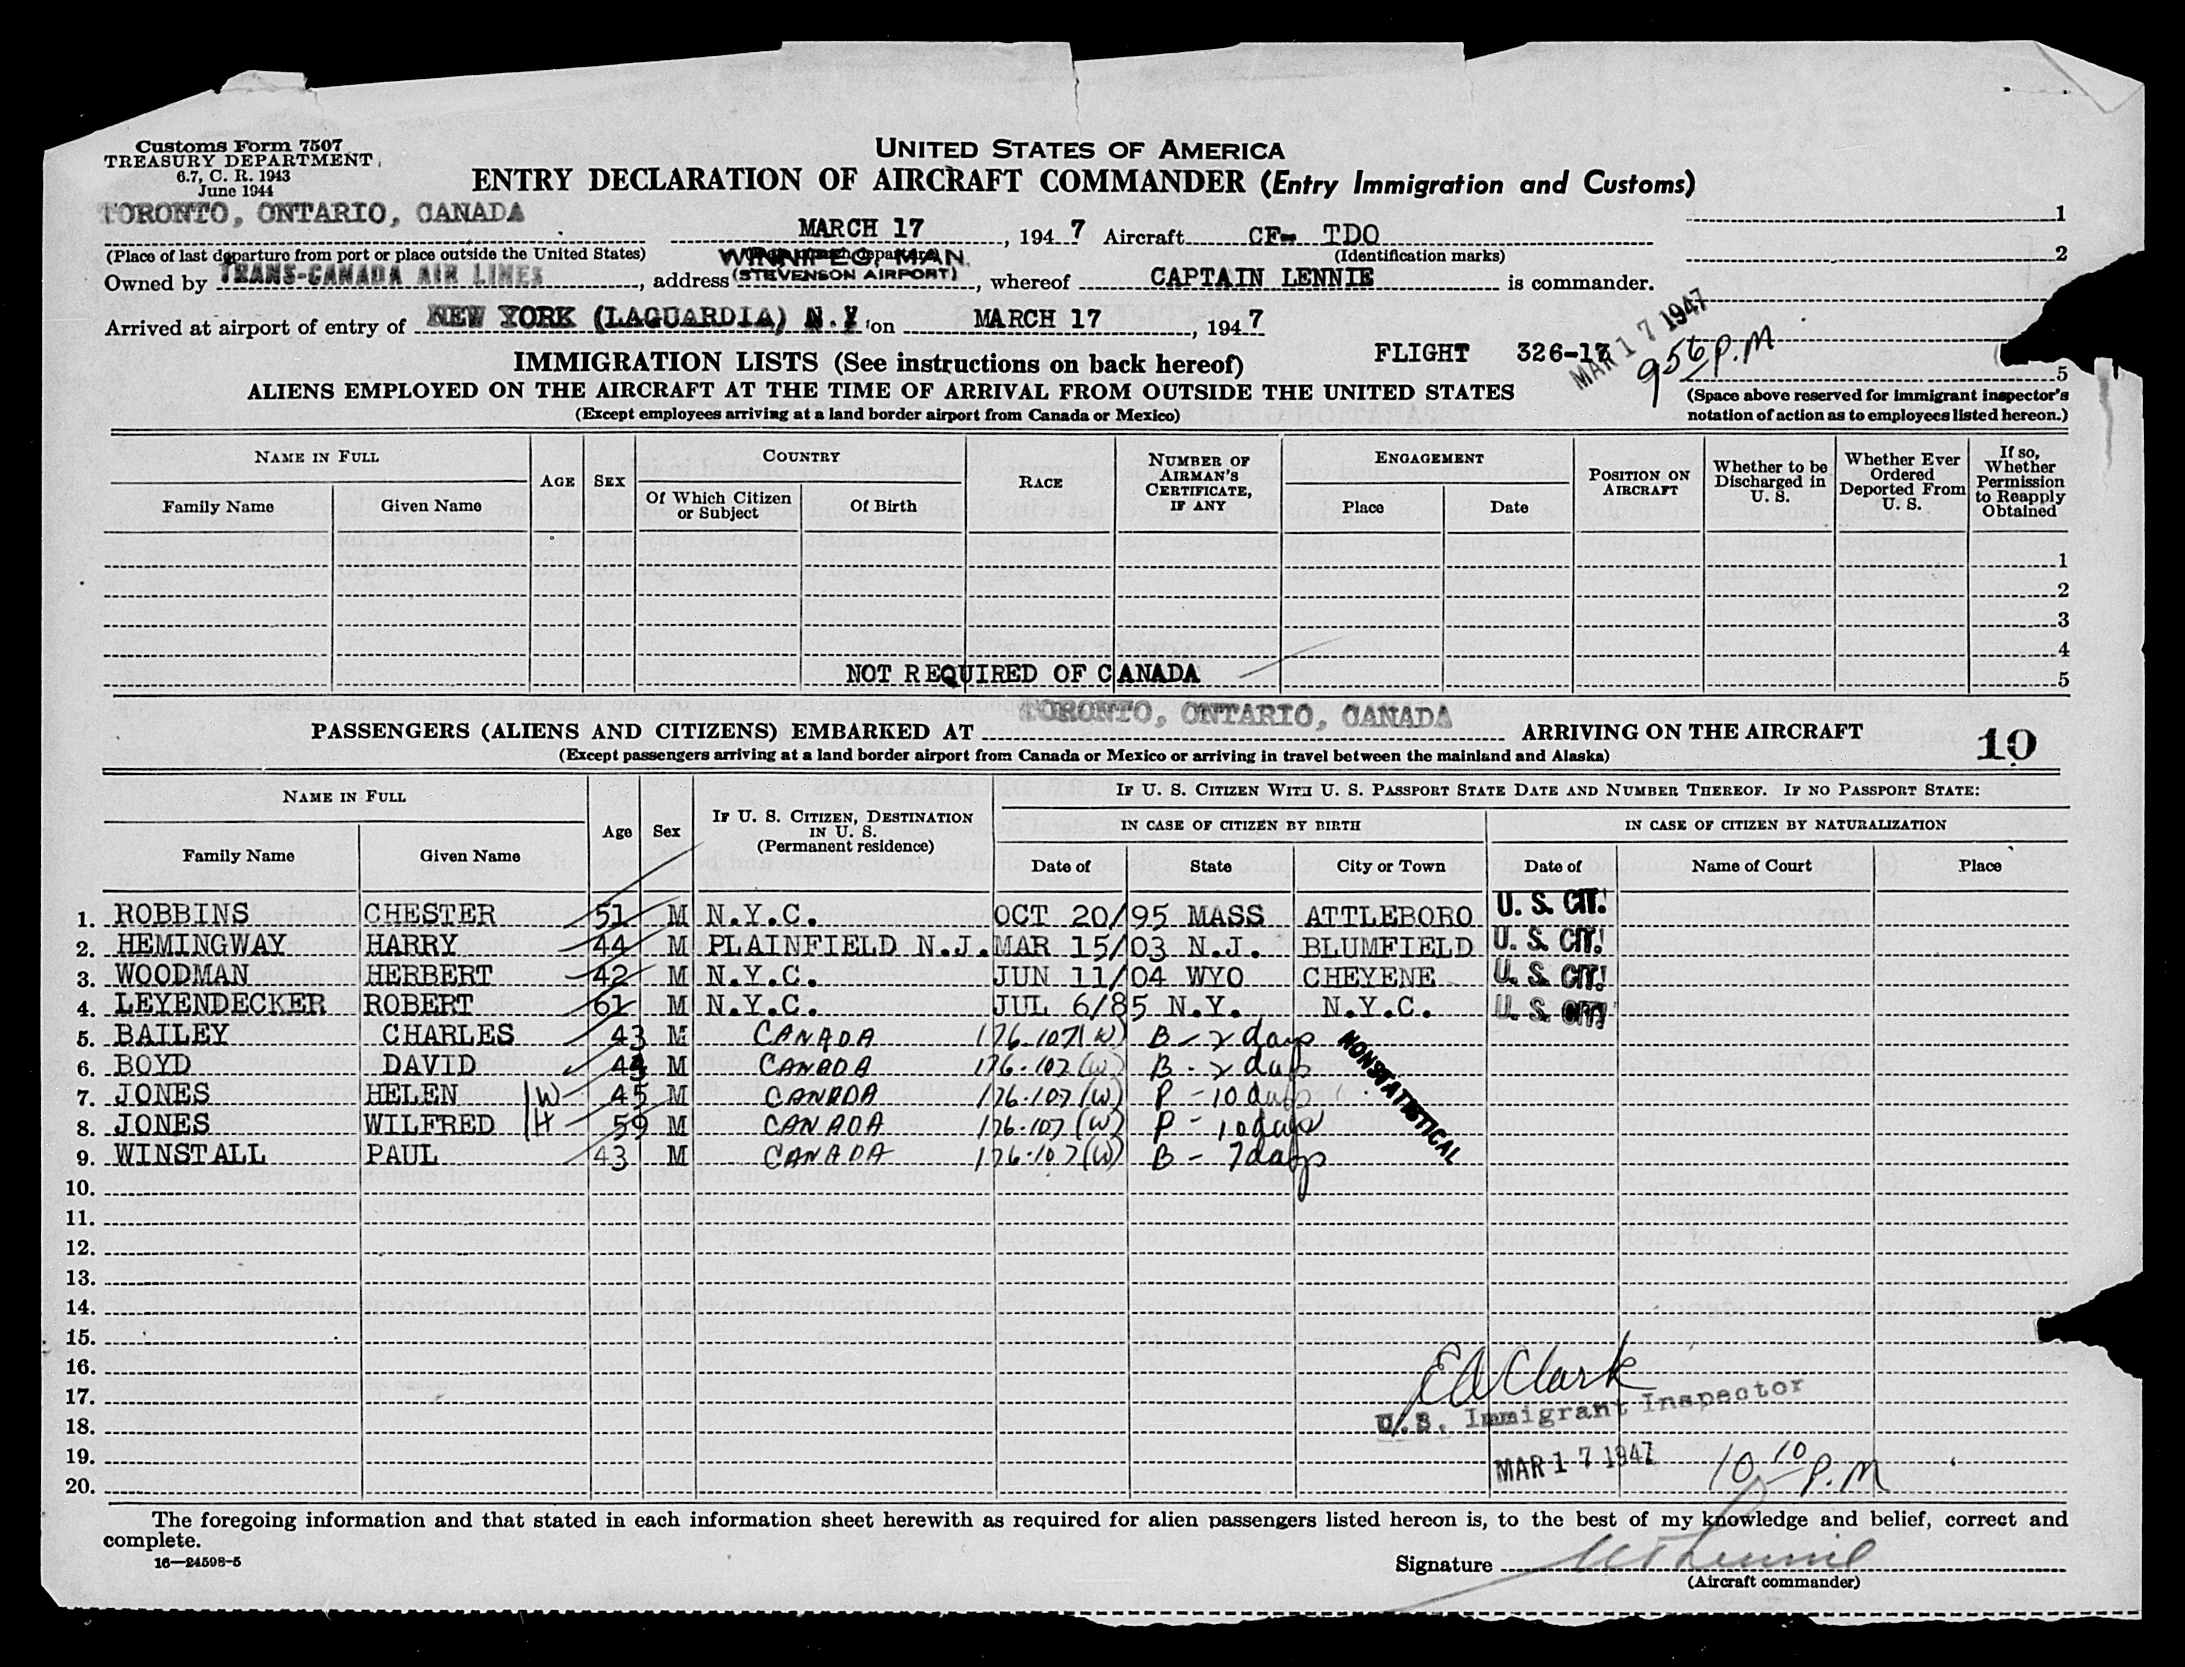 Customs Form 7507
TREASURY DEPARTMENT
6.7, C. R. 1943
June 1944
UNITED STATES OF AMERICA
ENTRY DECLARATION OF AIRCRAFT COMMANDER (Entry Immigration and Customs)
TORONTO, ONTARIO, CANADA
MARCH 17, 1947 Aircraft CF- TDO
1
(Place of last departure from port or place outside the United States)
(Identification marks)
2
WINNIPEG, MAN.
Owned by TRANS-CANADA AIR LINES, address (STEVENSON AIRPORT), whereof CAPTAIN LENNIE is commander.
Arrived at airport of entry of NEW YORK (LAGUARDIA) N.Y. on MARCH 17, 1947
MAR 17 1947
9 56 P.M
IMMIGRATION LISTS (See instructions on back hereof)
FLIGHT 326-17
5
ALIENS EMPLOYED ON THE AIRCRAFT AT THE TIME OF ARRIVAL FROM OUTSIDE THE UNITED STATES
(Except employees arriving at a land border airport from Canada or Mexico)
(Space above reserved for immigrant inspector's
notation of action as to employees listed hereon.)
NAME IN FULL
Family Name Given Name
AGE SEX
COUNTRY
Of Which Citizen or Subject
Of Birth
RACE
NUMBER OF AIRMAN'S CERTIFICATE, IF ANY
ENGAGEMENT
Place Date
POSITION ON AIRCRAFT
Whether to be Discharged in U. S.
Whether Ever Ordered Deported From U. S.
If so, Whether Permission to Reapply Obtained
1
2
3
4
NOT REQUIRED OF CANADA
5
PASSENGERS (ALIENS AND CITIZENS) EMBARKED AT TORONTO, ONTARIO, CANADA ARRIVING ON THE AIRCRAFT
10
(Except passengers arriving at a land border airport from Canada or Mexico or arriving in travel between the mainland and Alaska)
NAME IN FULL
Family Name Given Name
Age Sex
IF U. S. CITIZEN, DESTINATION IN U. S.
(Permanent residence)
IF U. S. CITIZEN WITH U. S. PASSPORT STATE DATE AND NUMBER THEREOF. IF NO PASSPORT STATE:
IN CASE OF CITIZEN BY BIRTH
IN CASE OF CITIZEN BY NATURALIZATION
Date of State City or Town Date of Name of Court Place
1. ROBBINS CHESTER 51 M N.Y.C. OCT 20/95 MASS ATTLEBORO U. S. CIT.
2. HEMINGWAY HARRY 44 M PLAINFIELD N.J. MAR 15/03 N.J. BLUMFIELD U. S. CIT.
3. WOODMAN HERBERT 42 M N.Y.C. JUN 11/04 WYO CHEYENE U. S. CIT.
4. LEYENDECKER ROBERT 61 M N.Y.C. JUL 6/85 N.Y. N.Y.C. U. S. CIT.
5. BAILEY CHARLES 43 M CANADA 176-107(W) B - 2 days
6. BOYD DAVID M CANADA 176-107(W) B - 2 days
7. JONES HELEN W 45 M CANADA 176-107(W) P - 10 days
8. JONES WILFRED H 59 M CANADA 176-107(W) P - 10 days
9. WINSTALL PAUL 43 M CANADA 176-107(W) B - 7 days
NONSTATISTICAL
10.
11.
12.
13.
14.
15.
16.
17.
18.
19.
20.
Clark
U.S. Immigrant Inspector
MAR 17 1947
10 10 P.M
The foregoing information and that stated in each information sheet herewith as required for alien passengers listed hereon is, to the best of my knowledge and belief, correct and
complete.
16—24598-5
Signature Lennie
(Aircraft commander)